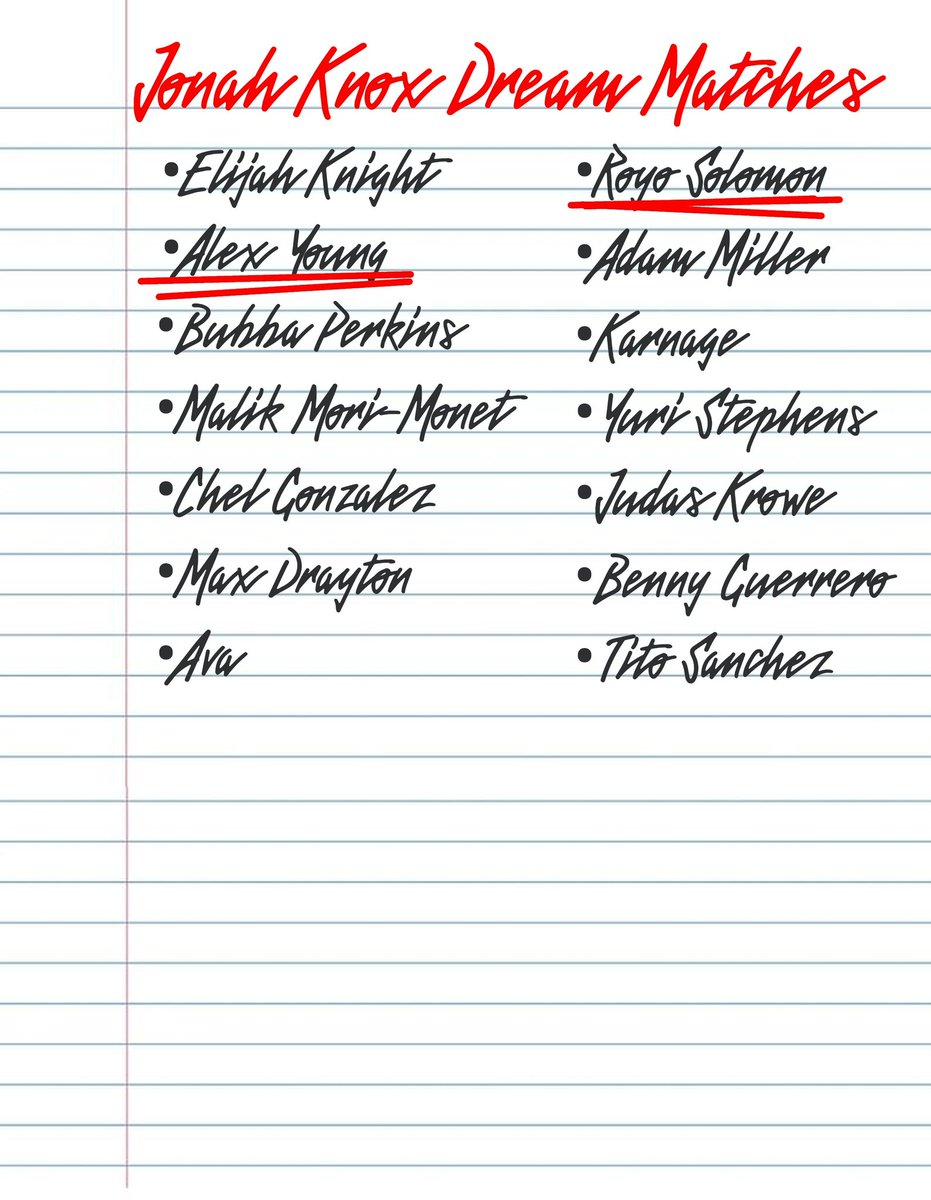 Jonah Knox Dream Matches
•Elijah Knight
•Alex Young
•Bubba Perkins
•Malik Mori-Monet
•Chel Gonzalez
•Max Drayton
•Ava
•Royo Solomon
•Adam Miller
•Karnage
•Yuri Stephens
•Judas Krowe
•Benny Guerrero
•Tito Sanchez